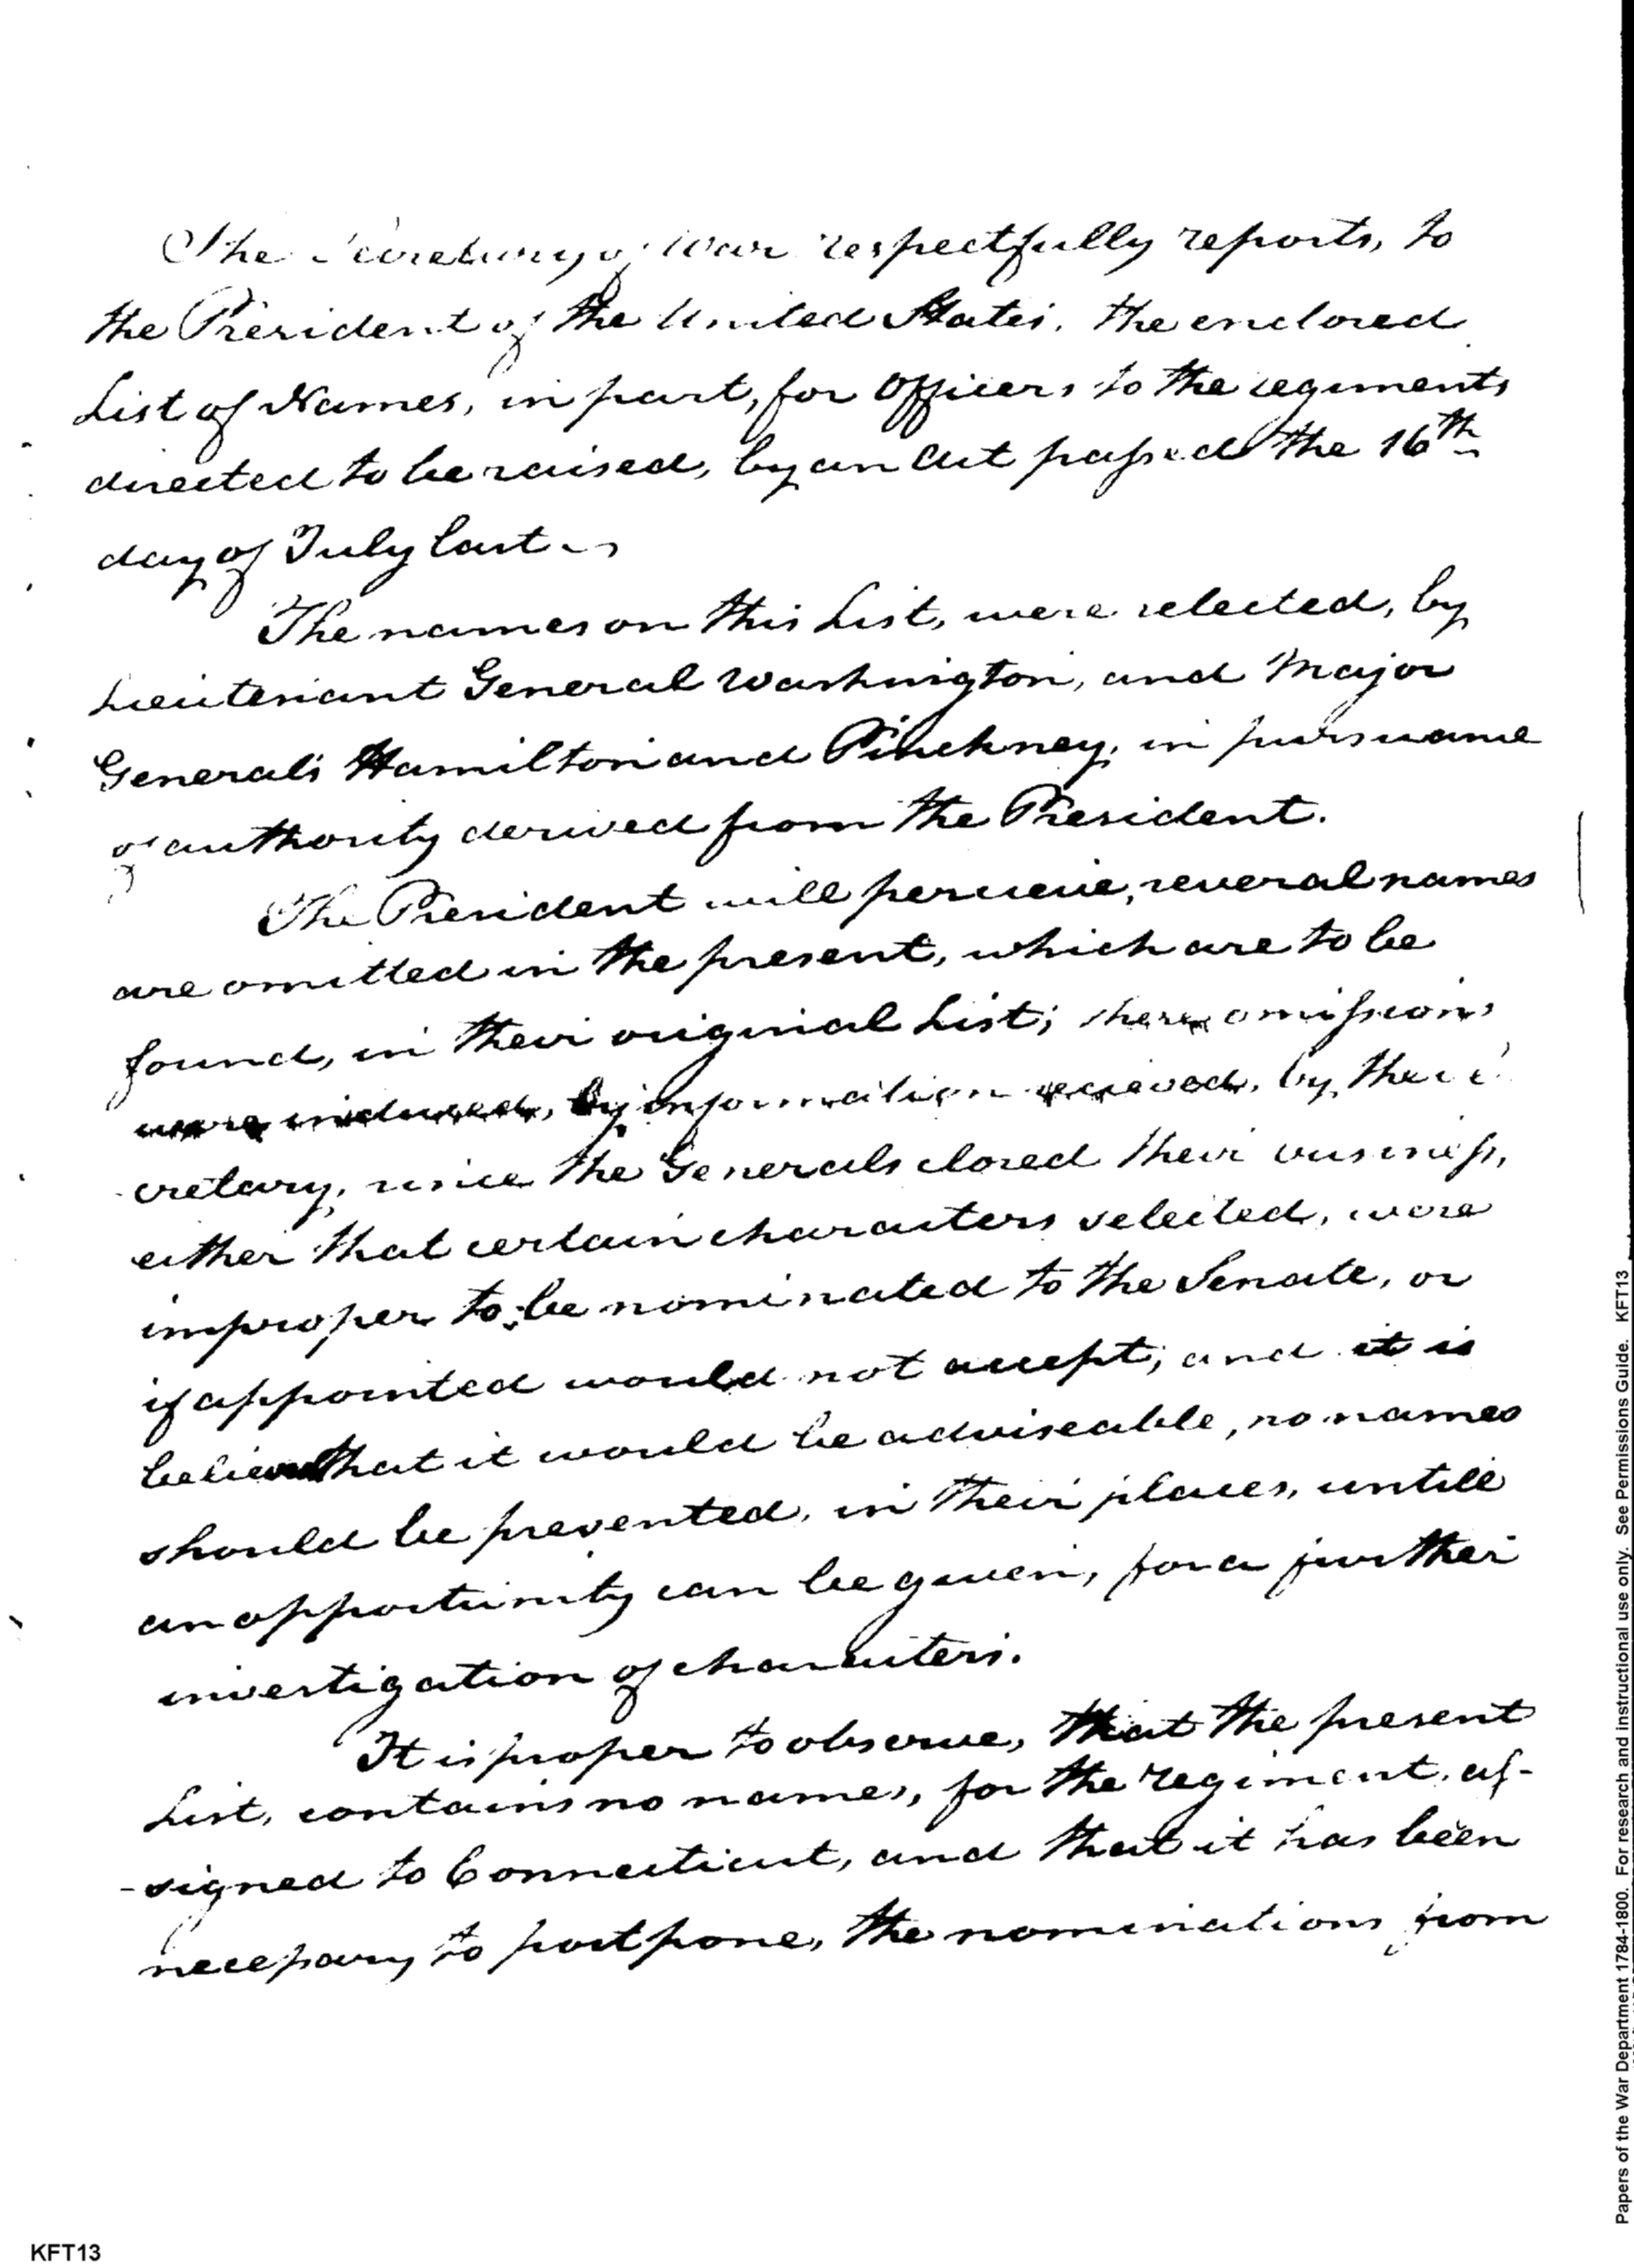 The Secretary of War respectfully reports, to
the President of the United States, the enclosed
List of Names, in part, for Officers to the regiments
directed to be raised, by an Act passed the 16th
day of July last.
The names on this List, were selected, by
Lieutenant General Washington, and Major
Generals Hamilton and Pinckney, in pursuance
of authority derived from the President.
The President will perceive, several names
are omitted in the present, which are to be
found, in their original List; these omissions
were induced, by information recieved, by the Se
cretary, since the Generals closed their business,
either that certain characters selected, were
improper to be nominated to the Senate, or
if appointed would not accept; and it is
believed that it would be adviseable, no names
should be presented, in their places, untill
an opportunity can be given, for a further
investigation of characters.
It is proper to observe, that the present
List, contains no names, for the regiment, as-
-signed to Connecticut, and that it has been
necessary to postpone, the nominations from
KFT13
Papers of the War Department 1784-1800. For research and instructional use only. See Permissions Guide. KFT13